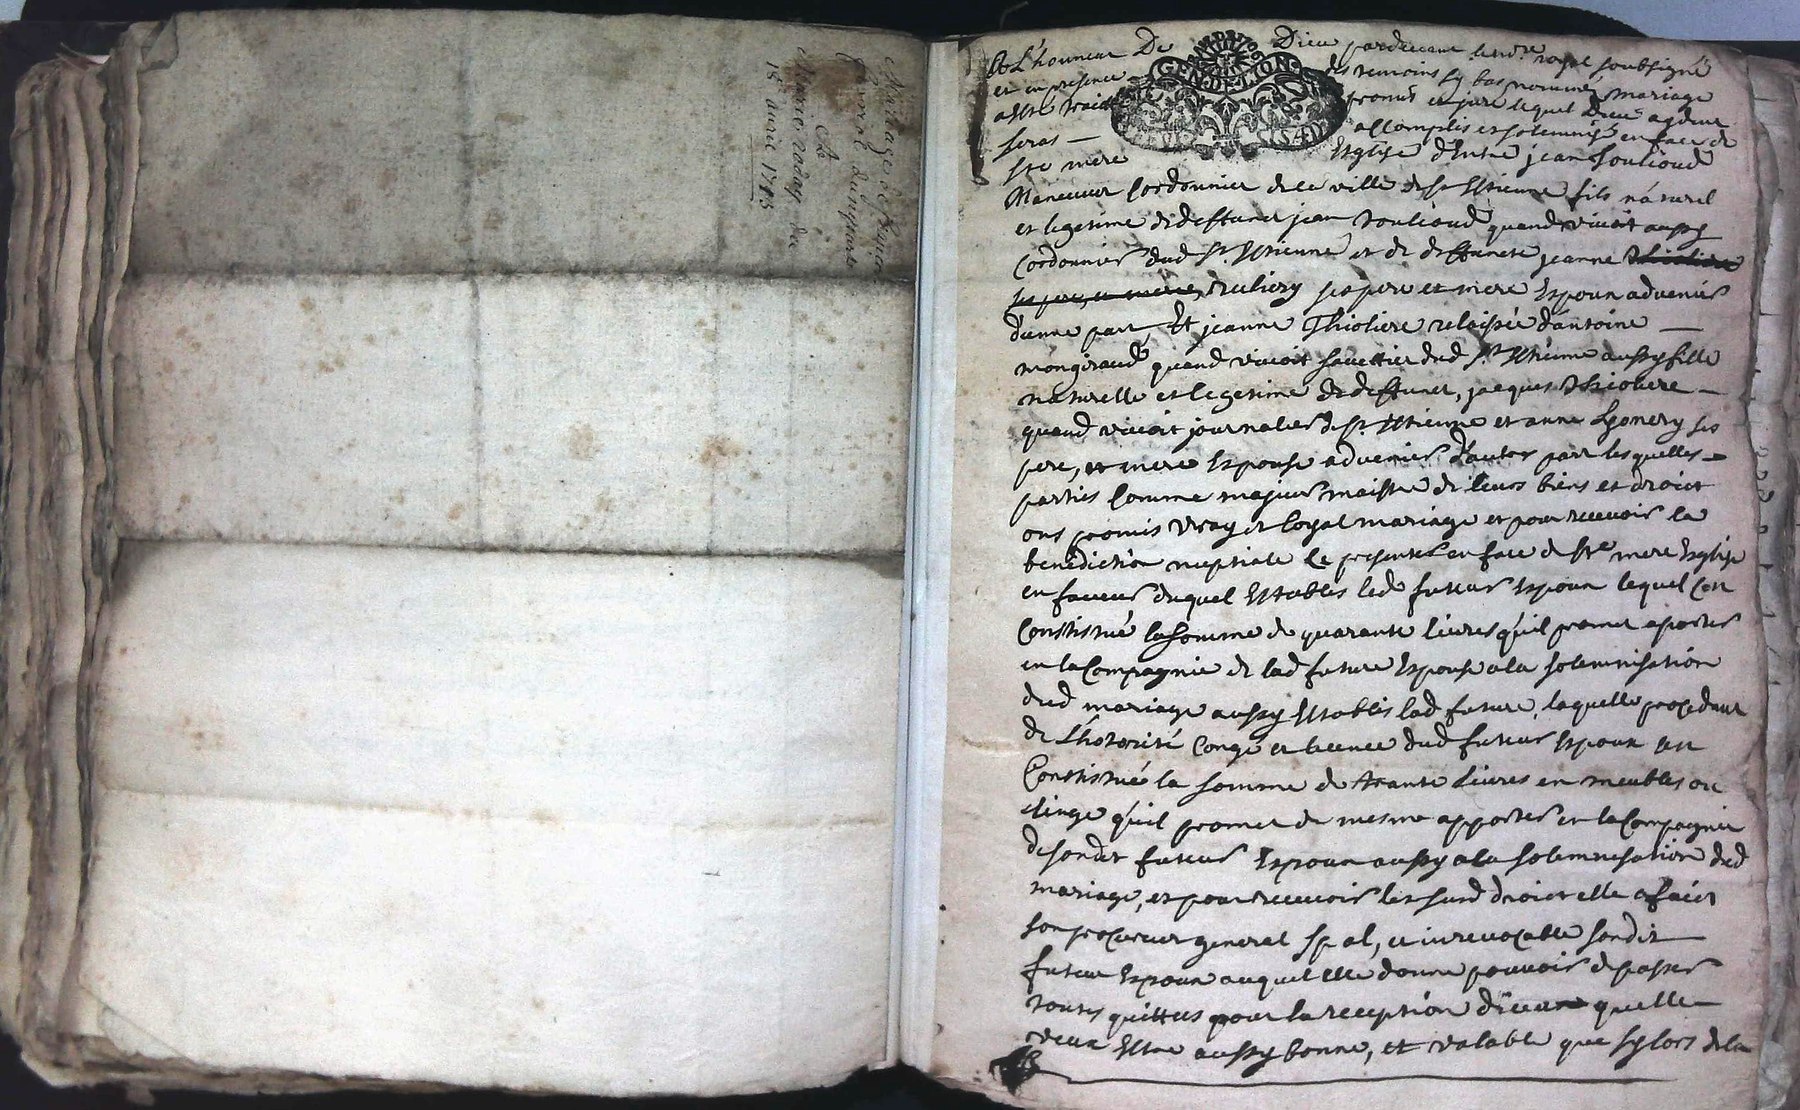 Mariage de
Et
Marie roday du
18e avril 1715
A L'honneur De Dieu pardevant le nore royal soubsigné
et en presence des temoins cy bas nommés mariage
a esté traité promis et juré lequel Dieu aydant
seras accomplis et solemnisé en face de
Ste mere Esglise d'Entre jean Soulioud
GEN.DE.LYON
Maneuur Cordonnier de ce ville de st Estienne fils naturel
et legetime de deffunct jean Soulioud quand vivoit aussy
Cordonnier dud st Estienne et de deffuncte jeanne
ses pere et mere, ruliery ses pere et mere Espoux advenir
d'unne part, Et jeanne Thioliere relaissée d'antoine
mongiraud quand vivoit savettier dud st Estienne aussy fille
naturelle et legetime de deffunct, jacques thioliere
quand vivoit journalier de st Estienne et anne ses
pere, et mere Espouse advenir d'autre part lesquelles
parties Comme majeurs maistre de leurs biens et droict
ont promis vray et loyal mariage et pour recevoir la
benediction nuptiale se presenter en face de Ste mere Esglise
en faveur duquel Establis led futeur Espoux lequel c'est
Constitué la somme de quarante livres qu'il promet aporter
en la Compagnie de lad future Espouse a la solemnisation
dud mariage aussy Establis lad future, laquelle procedant
de L'hotorité Congé et licence dud futeur Espoux s'est
Constitué la somme de trante livres en meubles ou
linge qu'il promet de mesme apporter en la Compagnie
de sondit futeur Espoux aussy a la solemnisation dud
mariage, et pour recevoir lesd susd droict elle a faict
son procureur general spal, et irrevocable sondit
futeur Espoux auquel elle donne pouvoir de passer
toutes quittes pour la reception d'iceux quelle
veux Estre aussy bonne, et valable que sy lors de la